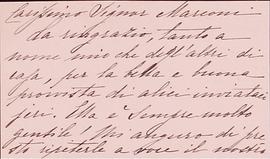 Carissimo Signor Marconi
La ringrazio, tanto a
nome mio che dell'altri di
casa, per la bella e buona
provista di alici inviataci
jeri. Ella è sempre molto
gentile! Mi auguro di pre
sto ripeterle a voce il nostro